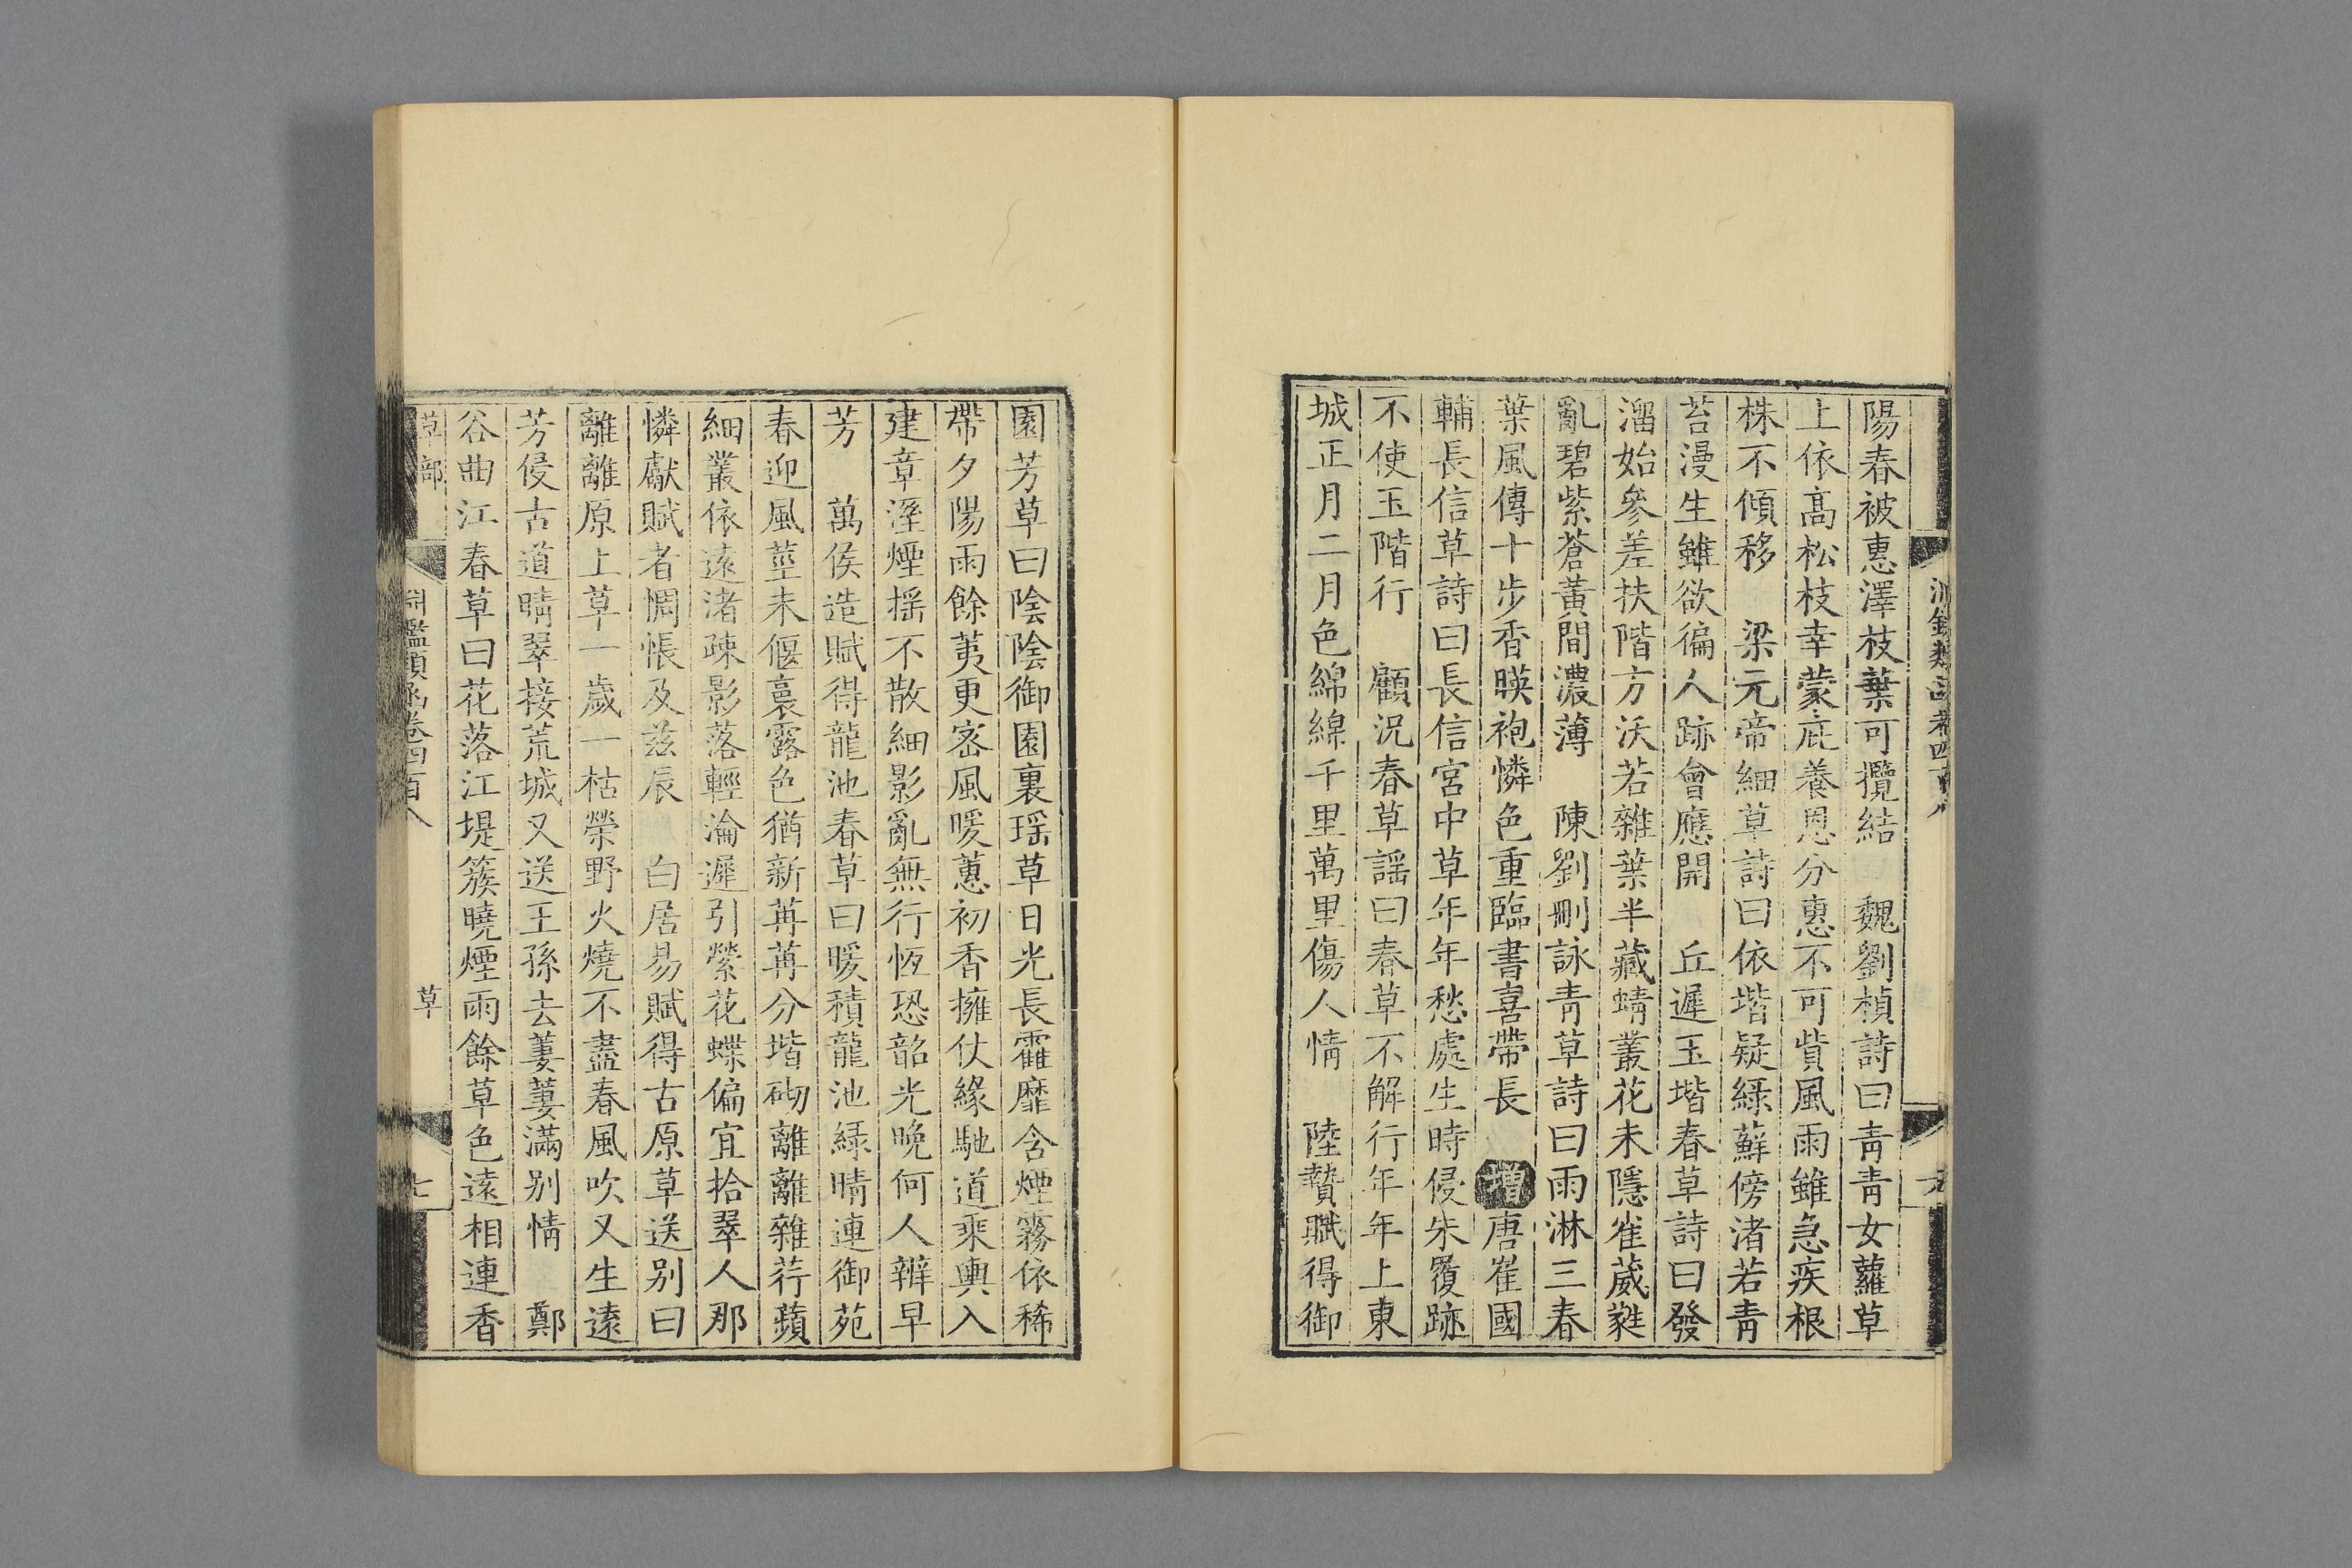 陽春被惠澤枝葉可攬結　魏劉楨詩曰青青女蘿草
上依高松枝幸蒙庇養恩分惠不可貲風雨雖急疾根
株不傾移　梁元帝細草詩曰依堦疑綠蘚傍渚若青
苔漫生雖欲徧人跡會應開　丘遲玉堦春草詩曰發
溜始參差扶階方沃若雜葉半藏蜻叢花未隱雀葳蕤
亂碧紫蒼黃間濃薄　陳劉刪詠青草詩曰雨淋三春
葉風傳十步香暎袍憐色重臨書喜帶長　增唐崔國
輔長信草詩曰長信宮中草年年愁處生時侵朱履跡
不使玉階行　顧況春草謡曰春草不解行年年上東
城正月二月色綿綿千里萬里傷人情　陸贄賦得御
園芳草曰陰陰御園裏瑶草日光長霍靡含煙霧依稀
帶夕陽雨餘荑更宻風暖蕙初香擁仗緣馳道乘輿入
建章溼煙揺不散細影亂無行恆恐韶光晚何人辨早
芳　萬俟造賦得龍池春草曰暖積龍池綠晴連御苑
春迎風莖未偃裛露色猶新苒苒分堦砌離離雜荇蘋
細叢依遠渚疎影落輕淪遲引縈花蝶偏宜拾翠人那
憐獻賦者惆悵及茲辰　白居易賦得古原草送别曰
離離原上草一歲一枯榮野火燒不盡春風吹又生遠
芳侵古道晴翠接荒城又送王孫去萋萋滿别情　鄭
谷曲江春草曰花落江堤簇曉煙雨餘草色遠相連香
草部
鑑類函卷四百八
草
七